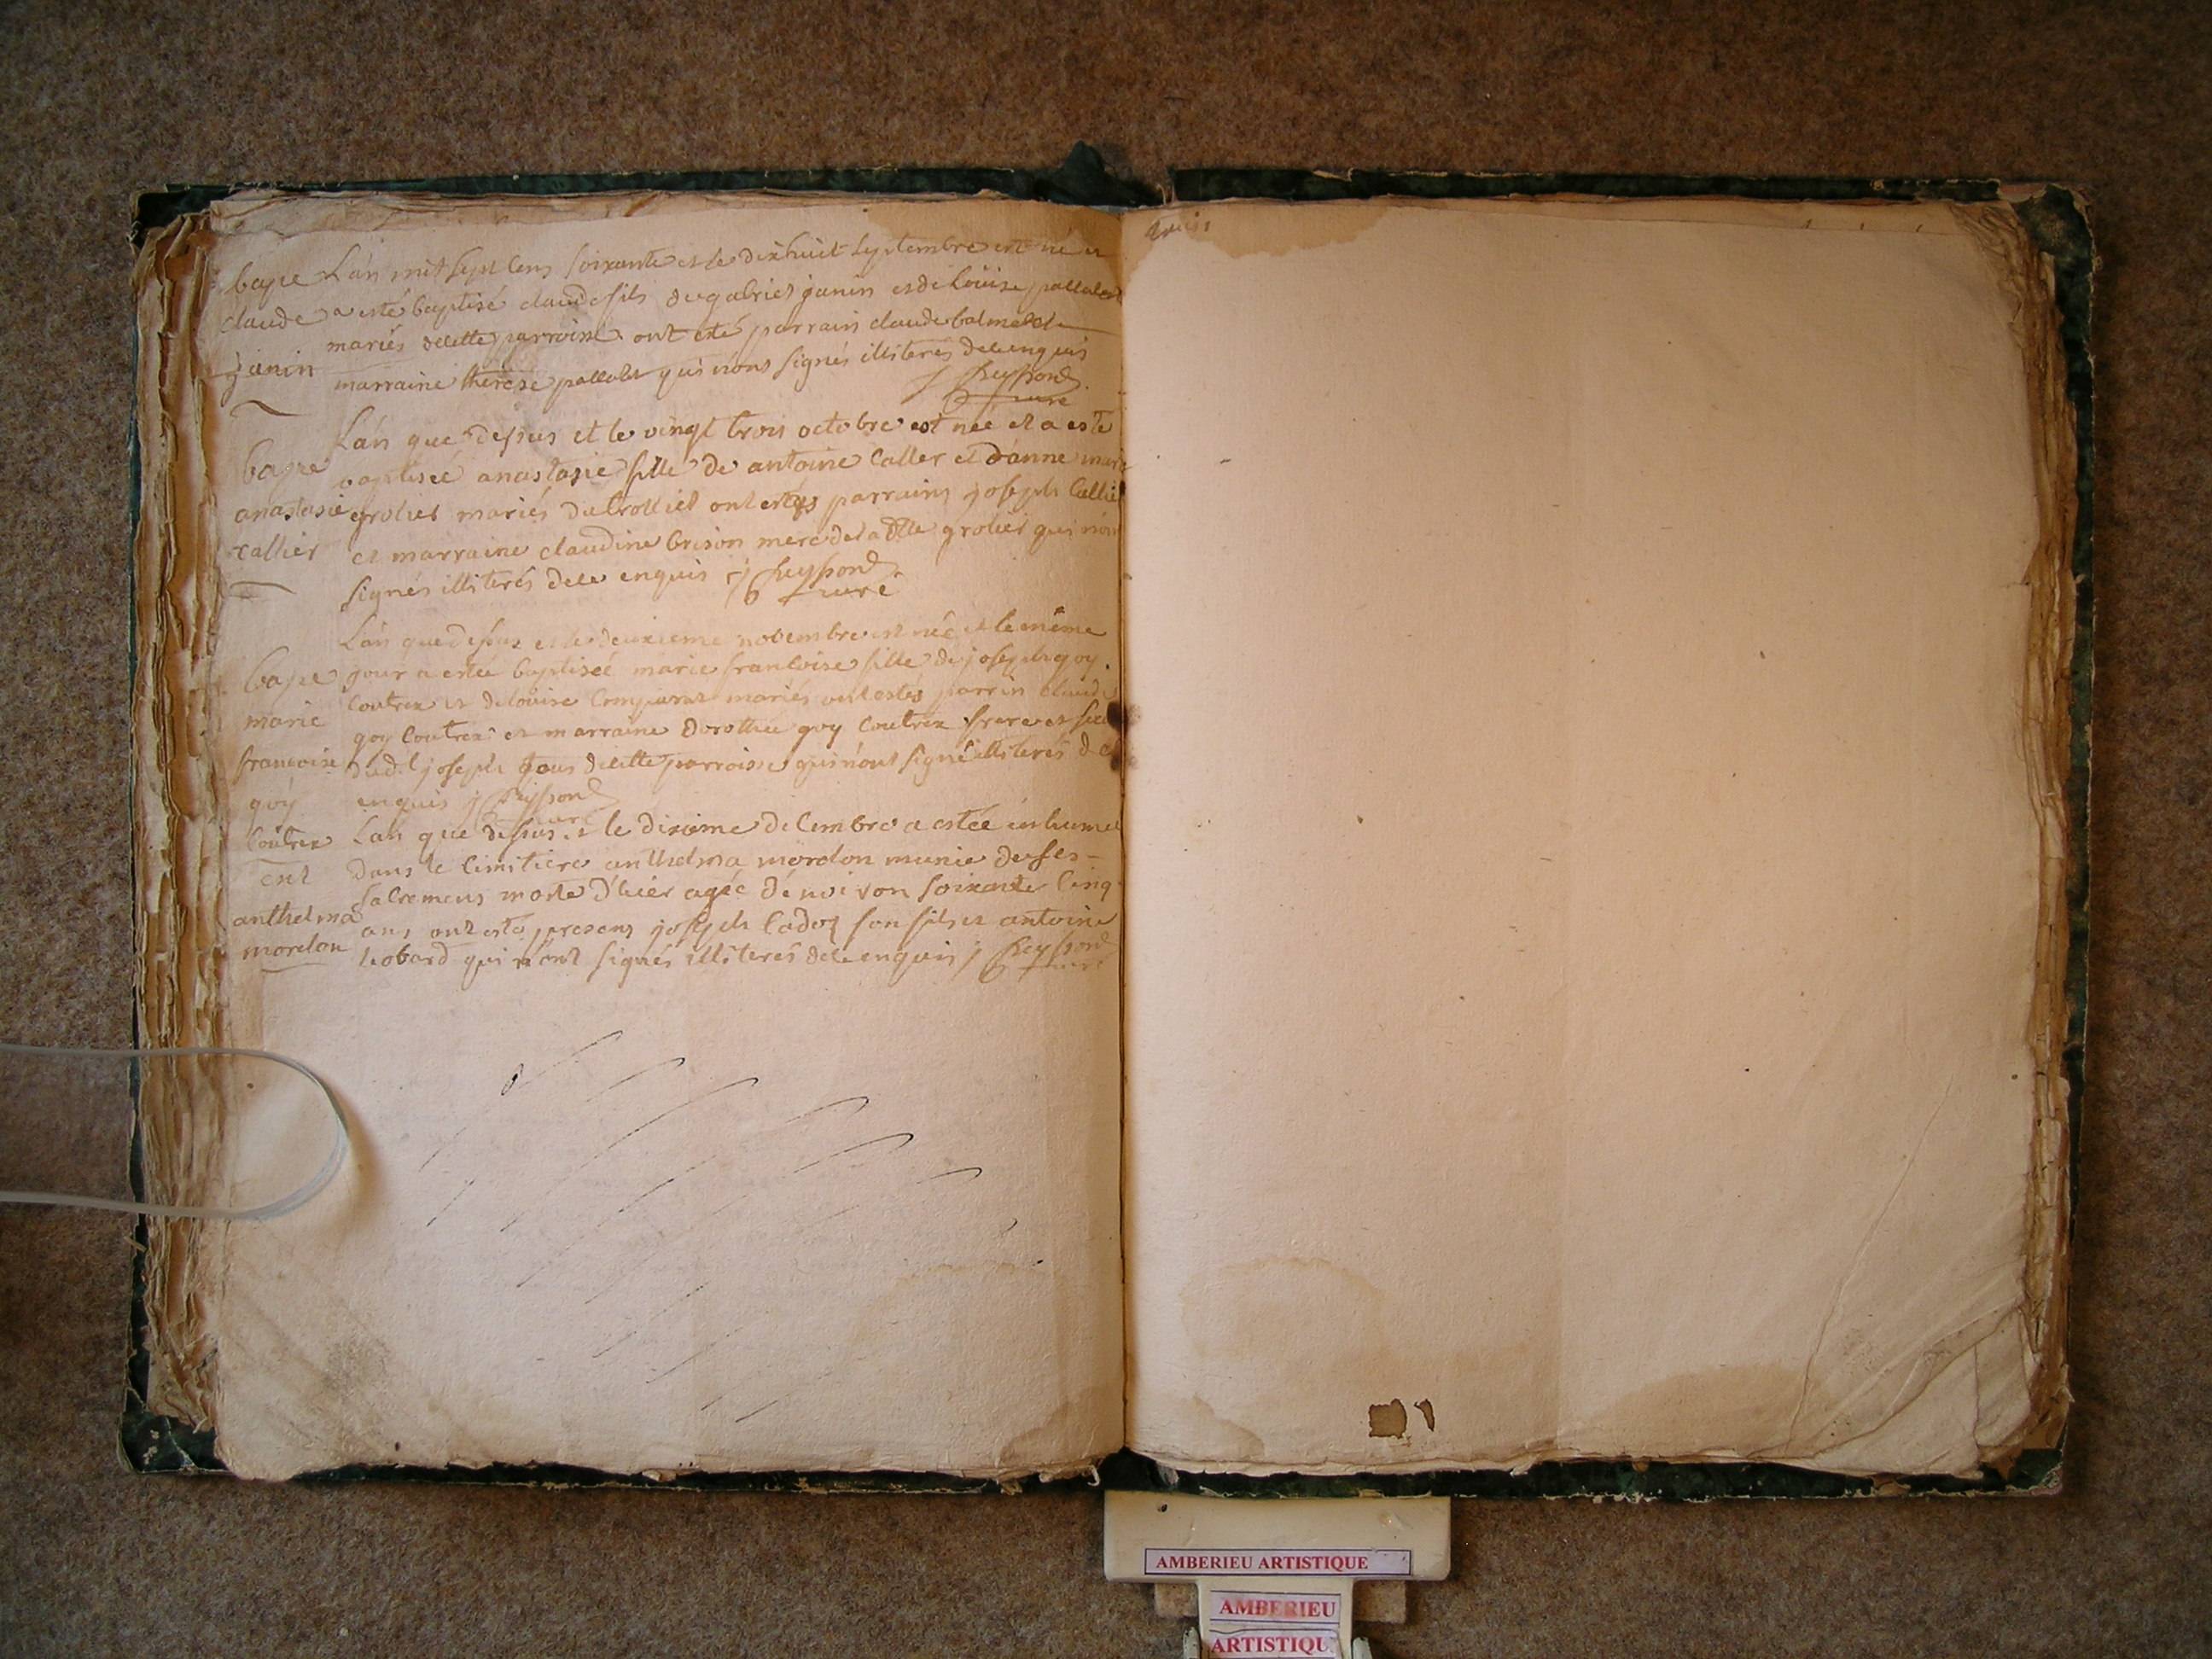 bapt L'an mil sept cens soixante et le dixhuit septembre est né et
claude a esté baptisé claude fils de gabriel janin et de Louise pallalet
mariés de cette parroisse ont esté parrain claude
janin marraine therese pallalet qui n'ont signés illiterés de ce enquis
j Reyssond
curé
L'an que dessus et le vingt trois octobre est née et a esté
bapt baptiseé anastasie fille de antoine callier et d'anne marie
anastasie grolier mariés du ont estés parrains joseph callier
callier et marraine claudine brison mere de la dtte grolier qui n'ont
signés illiterés de ce enquis j Reyssond
curé
L'an que dessus et le deuxieme novembre est née et le même
bapt jour a estée baptiseé marie francoise fille de joseph goy
coutrex et de louise mariés ont estés parrin claude
marie goy coutrex et marraine dorothée goy coutrex frere et
francoise dudt joseph tous de cette parroisse qui n'ont signé illiterés de ce
goy enquis j Reyssond
curé
coutrex L'an que dessus et le dixième décembre a estée inhumeé
ent dans le cimitiere anthelma morelon munie de ses
sacremens morte d'hier agée d'énviron soixante cinq
anthelma ans ont esté presens joseph cadoz son fils et antoine
morelon liobard qui n'ont signés illiterés de ce enquis j Reyssond
curé
AMBERIEU ARTISTIQUE
AMBERIEU
ARTISTIQU